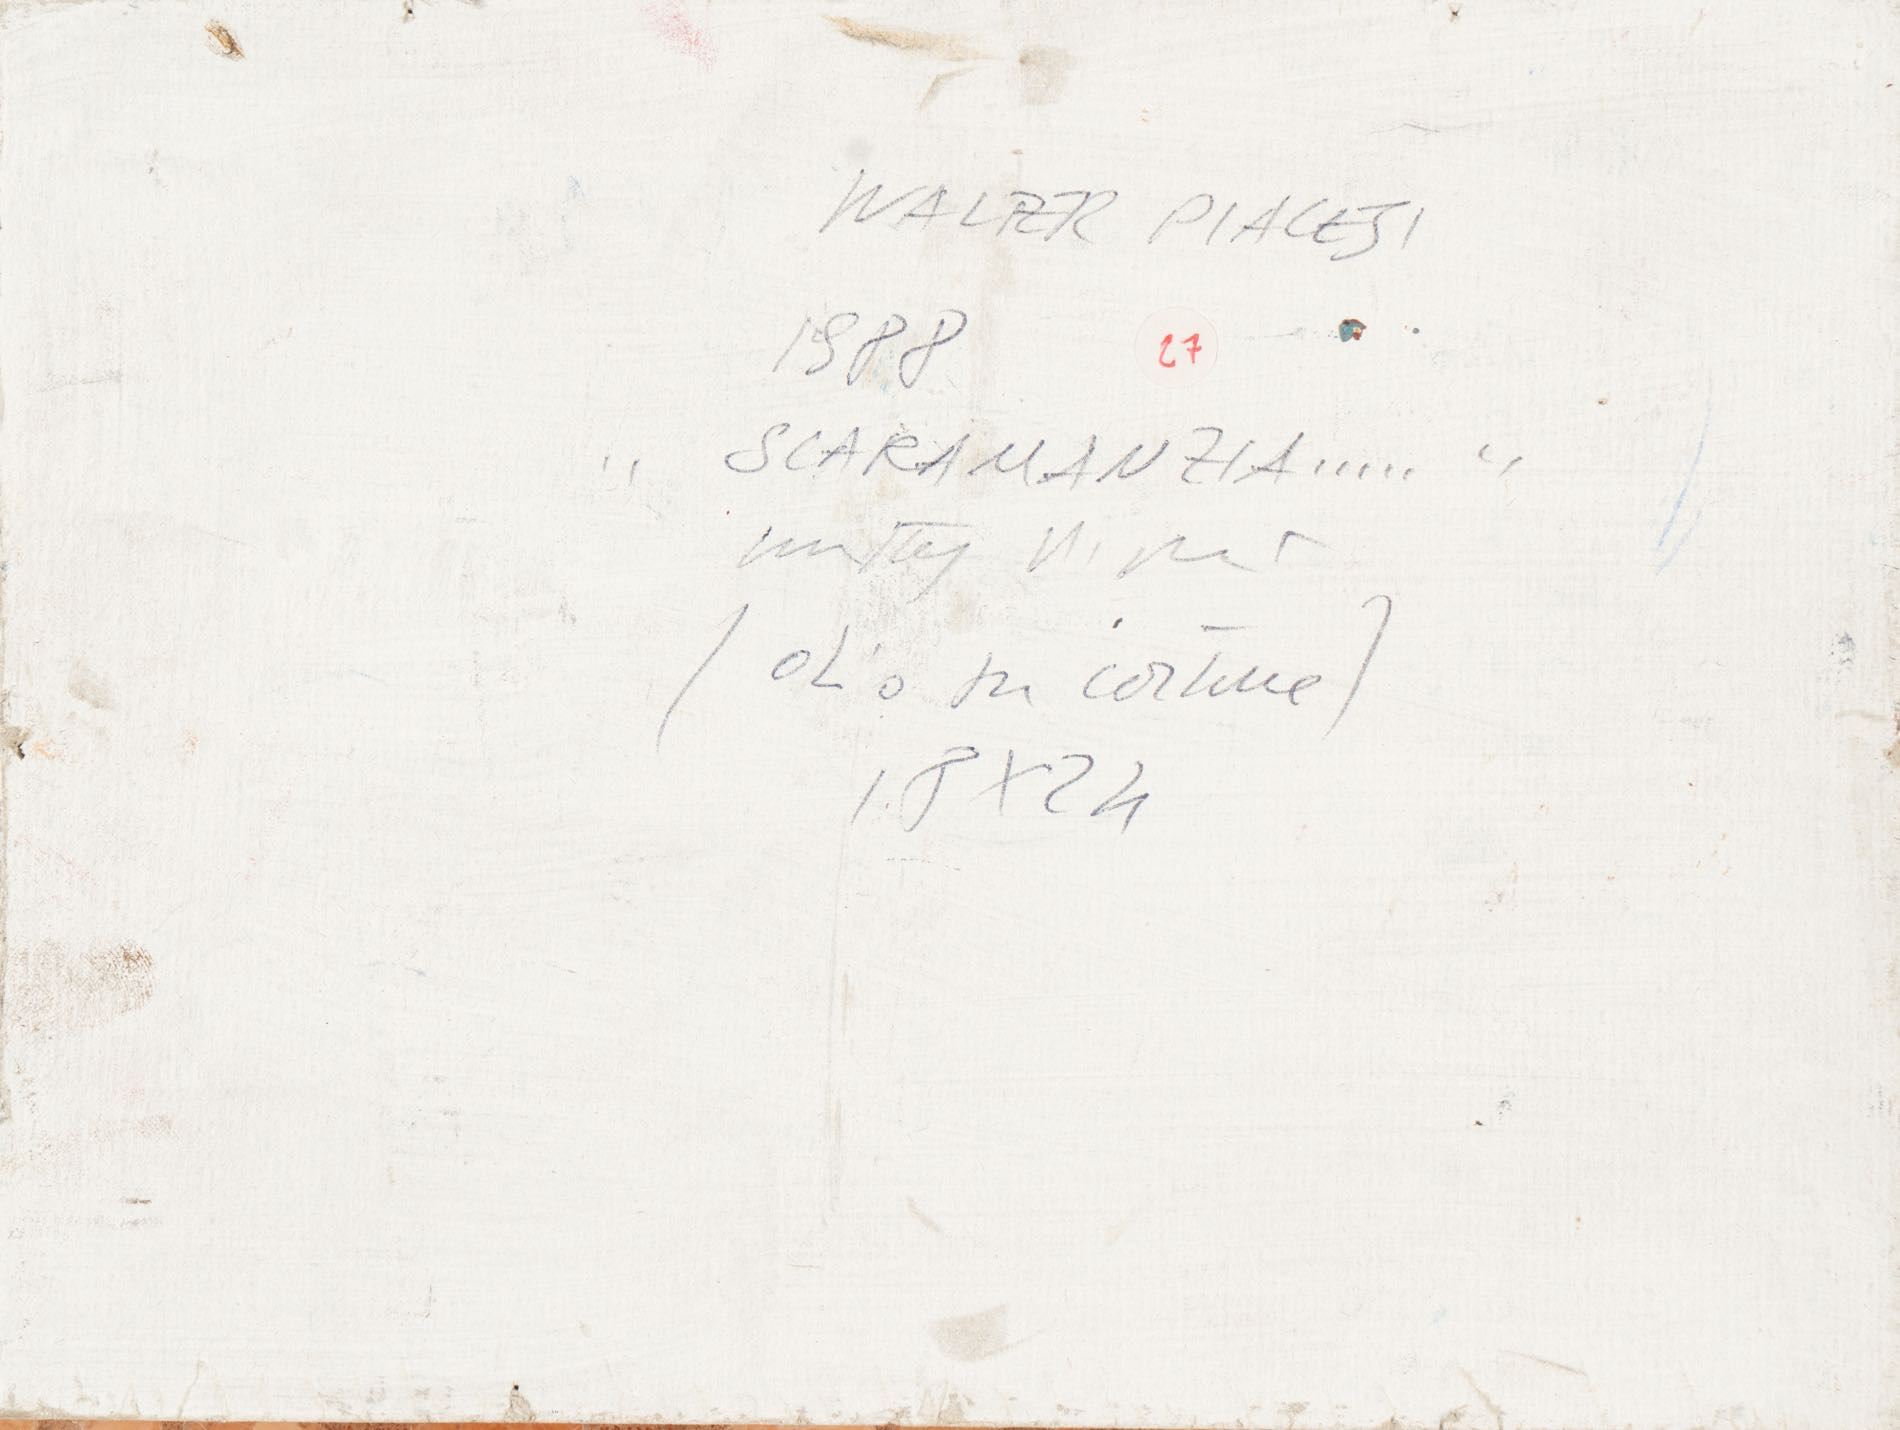 WALTER PIACESI
1988 27
" SCARAMANZIA..... "
(olio su cartone)
18X24